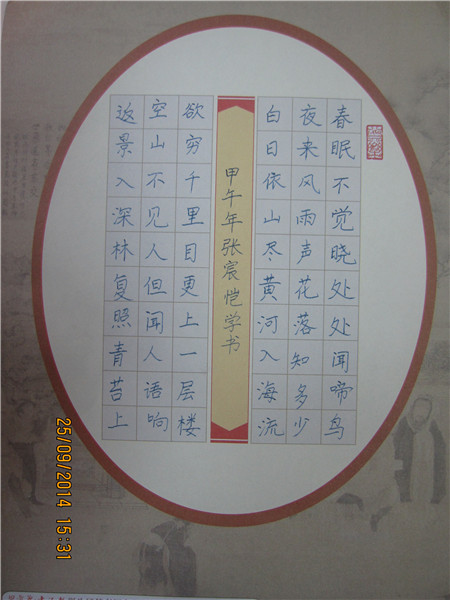 春眠不觉晓处处闻啼鸟
夜来风雨声花落知多少
白日依山尽黄河入海流
甲午年张宸恺学书
欲穷千里目更上一层楼
空山不见人但闻人语响
返景入深林复照青苔上
25/09/2014 15:31